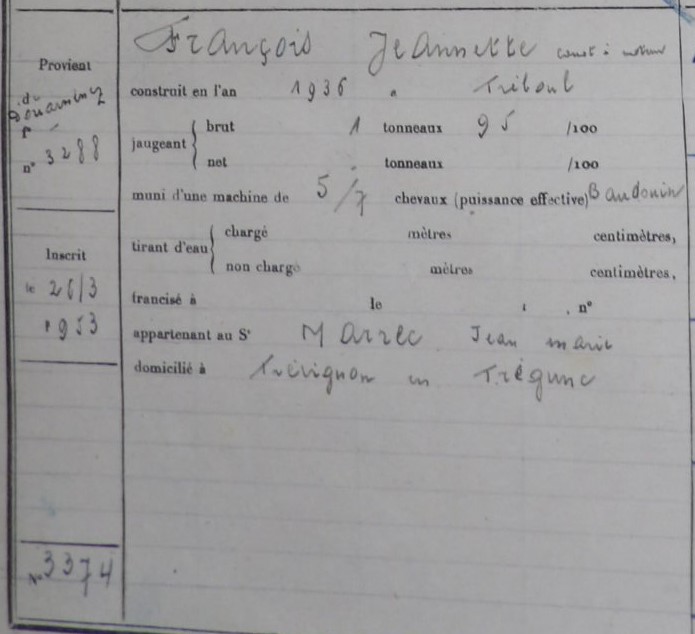 François Jeannette canot à moteur
Provient
du
Douarnenez
f°
n° 3288
construit en l'an 1936 à Tréboul
jaugeant { brut 1 tonneaux 95 /100
net tonneaux /100
muni d'une machine de 5/7 chevaux (puissance effective) Baudouin
Inscrit
le 26/3
1953
tirant d'eau { chargé mètres centimètres,
non chargé mètres centimètres,
francisé à le , n°
appartenant au Sr Marrec Jean marie
domicilié à Trévignon en Trégunc
No 3374